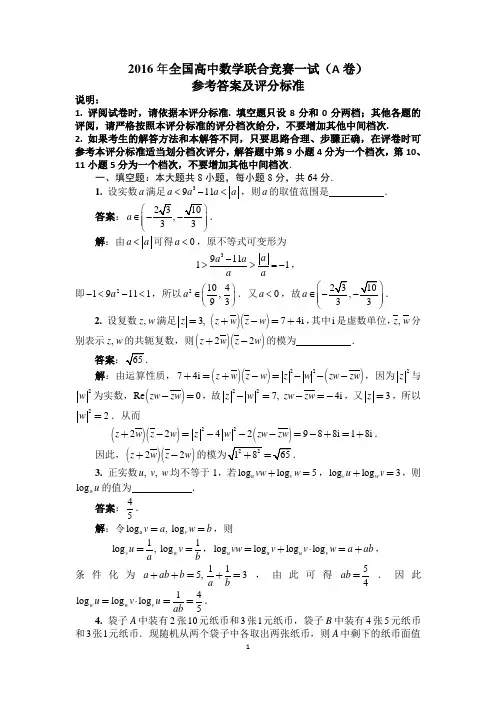 2016年全国高中数学联合竞赛一试（A卷）
参考答案及评分标准
说明：
1. 评阅试卷时，请依据本评分标准. 填空题只设8分和0分两档；其他各题的
评阅，请严格按照本评分标准的评分档次给分，不要增加其他中间档次.
2. 如果考生的解答方法和本解答不同，只要思路合理、步骤正确，在评卷时可
参考本评分标准适当划分档次评分，解答题中第9小题4分为一个档次，第10、
11小题5分为一个档次，不要增加其他中间档次.
一、填空题：本大题共8小题，每小题8分，共64分.
1. 设实数a满足a<9a³-11a<|a|，则a的取值范围是 .
答案：a∈(-2√3/3, -√10/3).
解：由a<|a|可得a<0，原不等式可变形为
1>(9a³-11a)/a>|a|/a=-1，
即-1<9a²-11<1，所以a²∈(10/9, 4/3). 又a<0，故a∈(-2√3/3, -√10/3).
2. 设复数z,w满足|z|=3, (z+w̄)(z̄-w)=7+4i，其中i是虚数单位，z̄,w̄分
别表示z,w的共轭复数，则(z+2w̄)(z̄-2w)的模为 .
答案：√65.
解：由运算性质，7+4i=(z+w̄)(z̄-w)=|z|²-|w|²-(zw-z̄w̄)，因为|z|²与
|w|²为实数，Re(zw-z̄w̄)=0，故|z|²-|w|²=7, zw-z̄w̄=-4i，又|z|=3，所以
|w|²=2. 从而
(z+2w̄)(z̄-2w)=|z|²-4|w|²-2(zw-z̄w̄)=9-8+8i=1+8i.
因此，(z+2w̄)(z̄-2w)的模为√1²+8²=√65.
3. 正实数u, v, w均不等于1，若logᵤvw+logᵥw=5，logᵥu+log_w v=3，则
log_w u的值为 .
答案：4/5.
解：令logᵤv=a, logᵥw=b，则
logᵥu=1/a, log_w v=1/b，logᵤvw=logᵤv+logᵤv·logᵥw=a+ab，
条件化为a+ab+b=5, 1/a+1/b=3，由此可得ab=5/4. 因此
log_w u=log_w v·logᵥu=1/ab=4/5.
4. 袋子A中装有2张10元纸币和3张1元纸币，袋子B中装有4张5元纸币
和3张1元纸币. 现随机从两个袋子中各取出两张纸币，则A中剩下的纸币面值
1